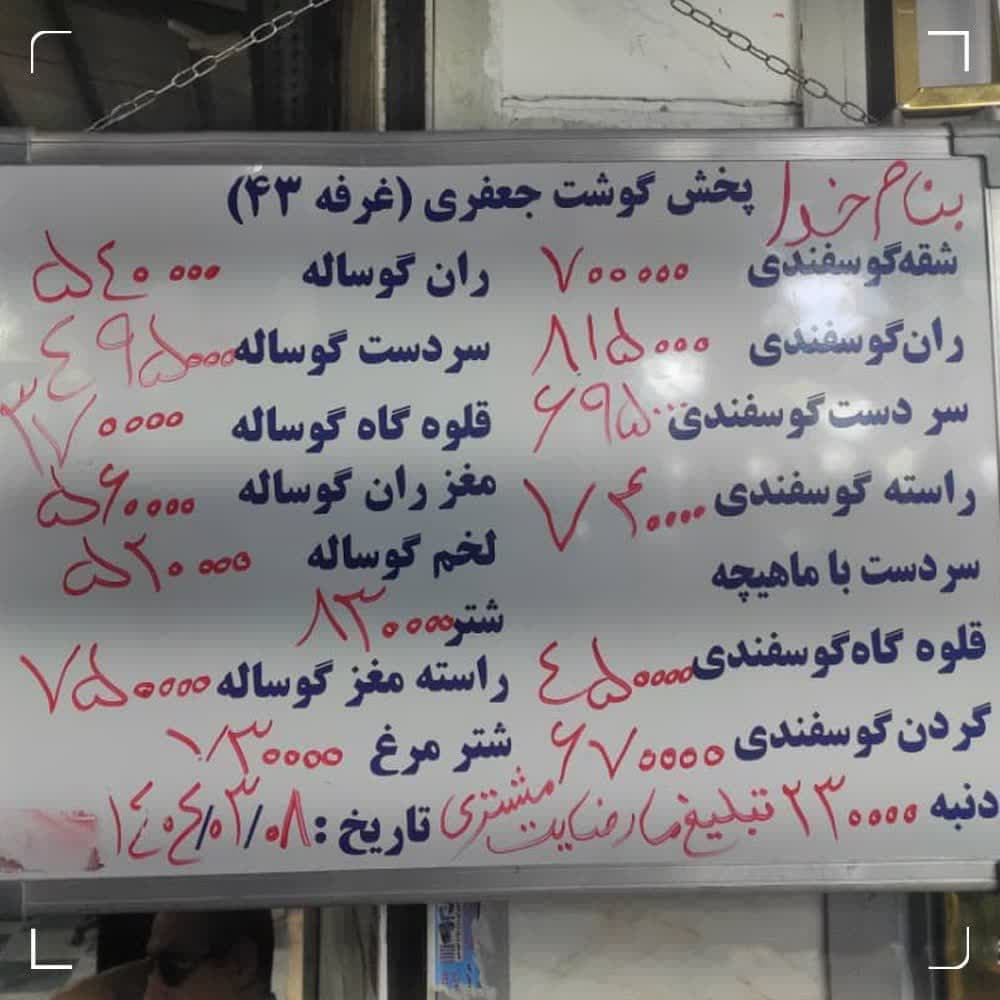 بنام خدا پخش گوشت جعفری (غرفه ۴۳)
شقه گوسفندی ۷۰۰۰۰۰ ران گوساله ۵۴۰۰۰۰
ران گوسفندی ۸۱۵۰۰۰ سردست گوساله ۴۹۵۰۰۰
سر دست گوسفندی ۶۹۵۰۰۰ قلوه گاه گوساله ۳۷۰۰۰۰
راسته گوسفندی ۷۴۰۰۰۰ مغز ران گوساله ۵۶۰۰۰۰
سردست با ماهیچه لخم گوساله ۵۲۰۰۰۰
شتر ۸۳۰۰۰۰
قلوه گاه گوسفندی ۴۵۰۰۰۰ راسته مغز گوساله ۷۵۰۰۰۰
گردن گوسفندی ۶۷۰۰۰۰ شتر مرغ ۷۳۰۰۰۰
دنبه ۲۳۰۰۰۰ تبلیغ ما رضایت مشتری تاریخ : ۱۴۰۴/۰۳/۰۸